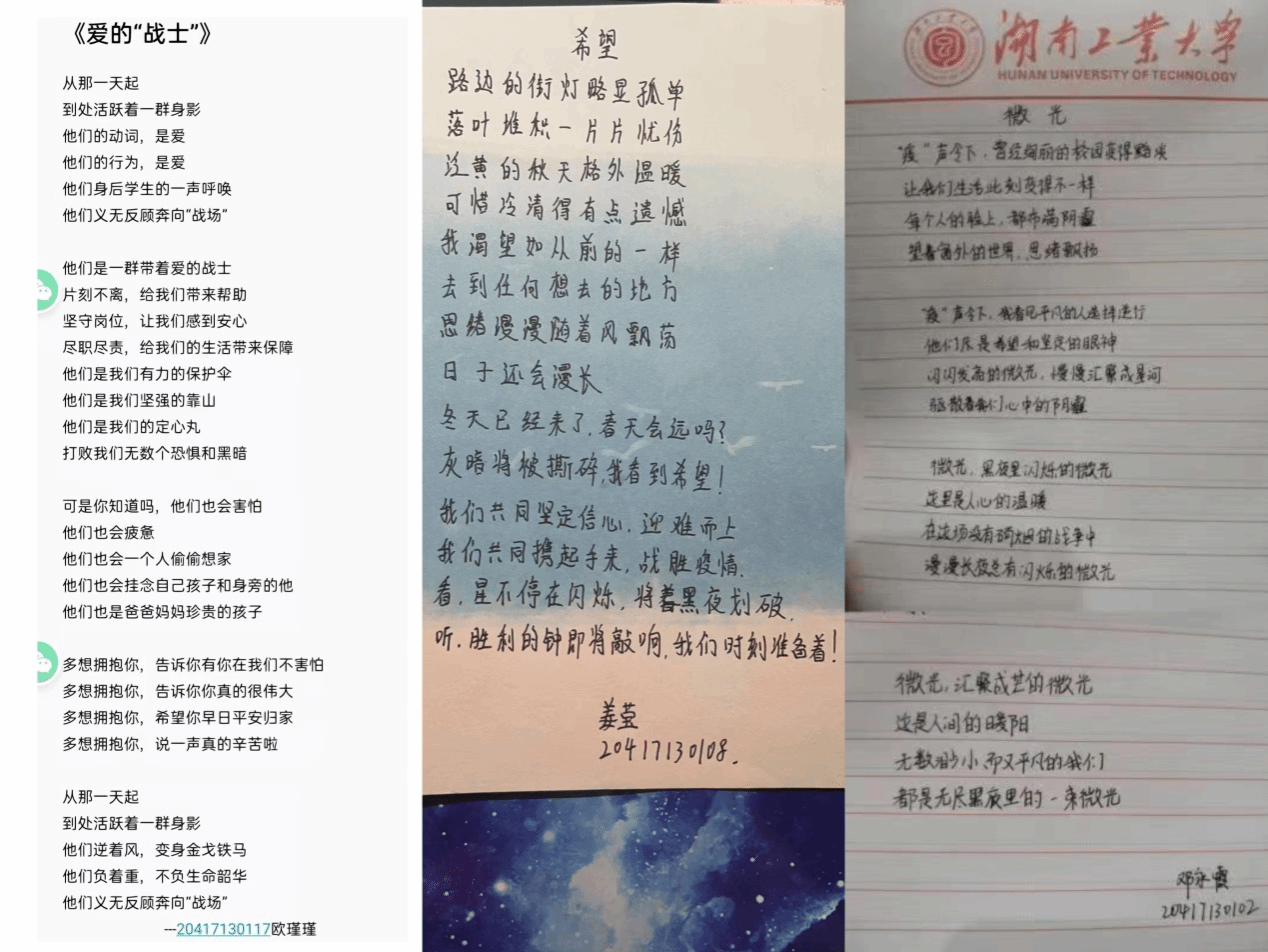 《爱的“战士”》
从那一天起
到处活跃着一群身影
他们的动词，是爱
他们的行为，是爱
他们身后学生的一声呼唤
他们义无反顾奔向“战场”
他们是一群带着爱的战士
片刻不离，给我们带来帮助
坚守岗位，让我们感到安心
尽职尽责，给我们的生活带来保障
他们是我们有力的保护伞
他们是我们坚强的靠山
他们是我们的定心丸
打败我们无数个恐惧和黑暗
可是你知道吗，他们也会害怕
他们也会疲惫
他们也会一个人偷偷想家
他们也会挂念自己孩子和身旁的他
他们也是爸爸妈妈珍贵的孩子
多想拥抱你，告诉你有你在我们不害怕
多想拥抱你，告诉你你真的很伟大
多想拥抱你，希望你早日平安归家
多想拥抱你，说一声真的辛苦啦
从那一天起
到处活跃着一群身影
他们逆着风，变身金戈铁马
他们负着重，不负生命韶华
他们义无反顾奔向“战场”
---20417130117欧瑾瑾
希望
路边的街灯略显孤单
落叶堆积一片片忧伤
泛黄的秋天格外温暖
可惜冷清得有点遗憾
我渴望如从前的一样
去到任何想去的地方
思绪漫漫随着风飘荡
日子还会漫长
冬天已经来了,春天会远吗?
灰暗将被撕碎,我看到希望!
我们共同坚定信心,迎难而上
我们共同携起手来,战胜疫情.
看,星不停在闪烁,将黑夜划破.
听.胜利的钟即将敲响,我们时刻准备着!
姜莹
20417130108.
湖南工业大学
HUNAN UNIVERSITY OF TECHNOLOGY
微光
“疫”声令下，曾经绚丽的校园变得黯淡
让我们生活此刻变得不一样
每个人的脸上，都布满阴霾
望着窗外的世界,思绪飘扬
“疫”声令下，我看见平凡的人选择逆行
他们尽是希望和坚定的眼神
闪闪发亮的微光，慢慢汇聚成星河
驱散着我们心中的阴霾
微光，黑夜里闪烁的微光
这里是人心的温暖
在这场没有硝烟的战争中
漫漫长夜总有闪烁的微光
微光,汇聚成芒的微光
这是人间的暖阳
无数渺小而又平凡的我们
都是无尽黑夜里的一束微光
邓永霞
20417130102